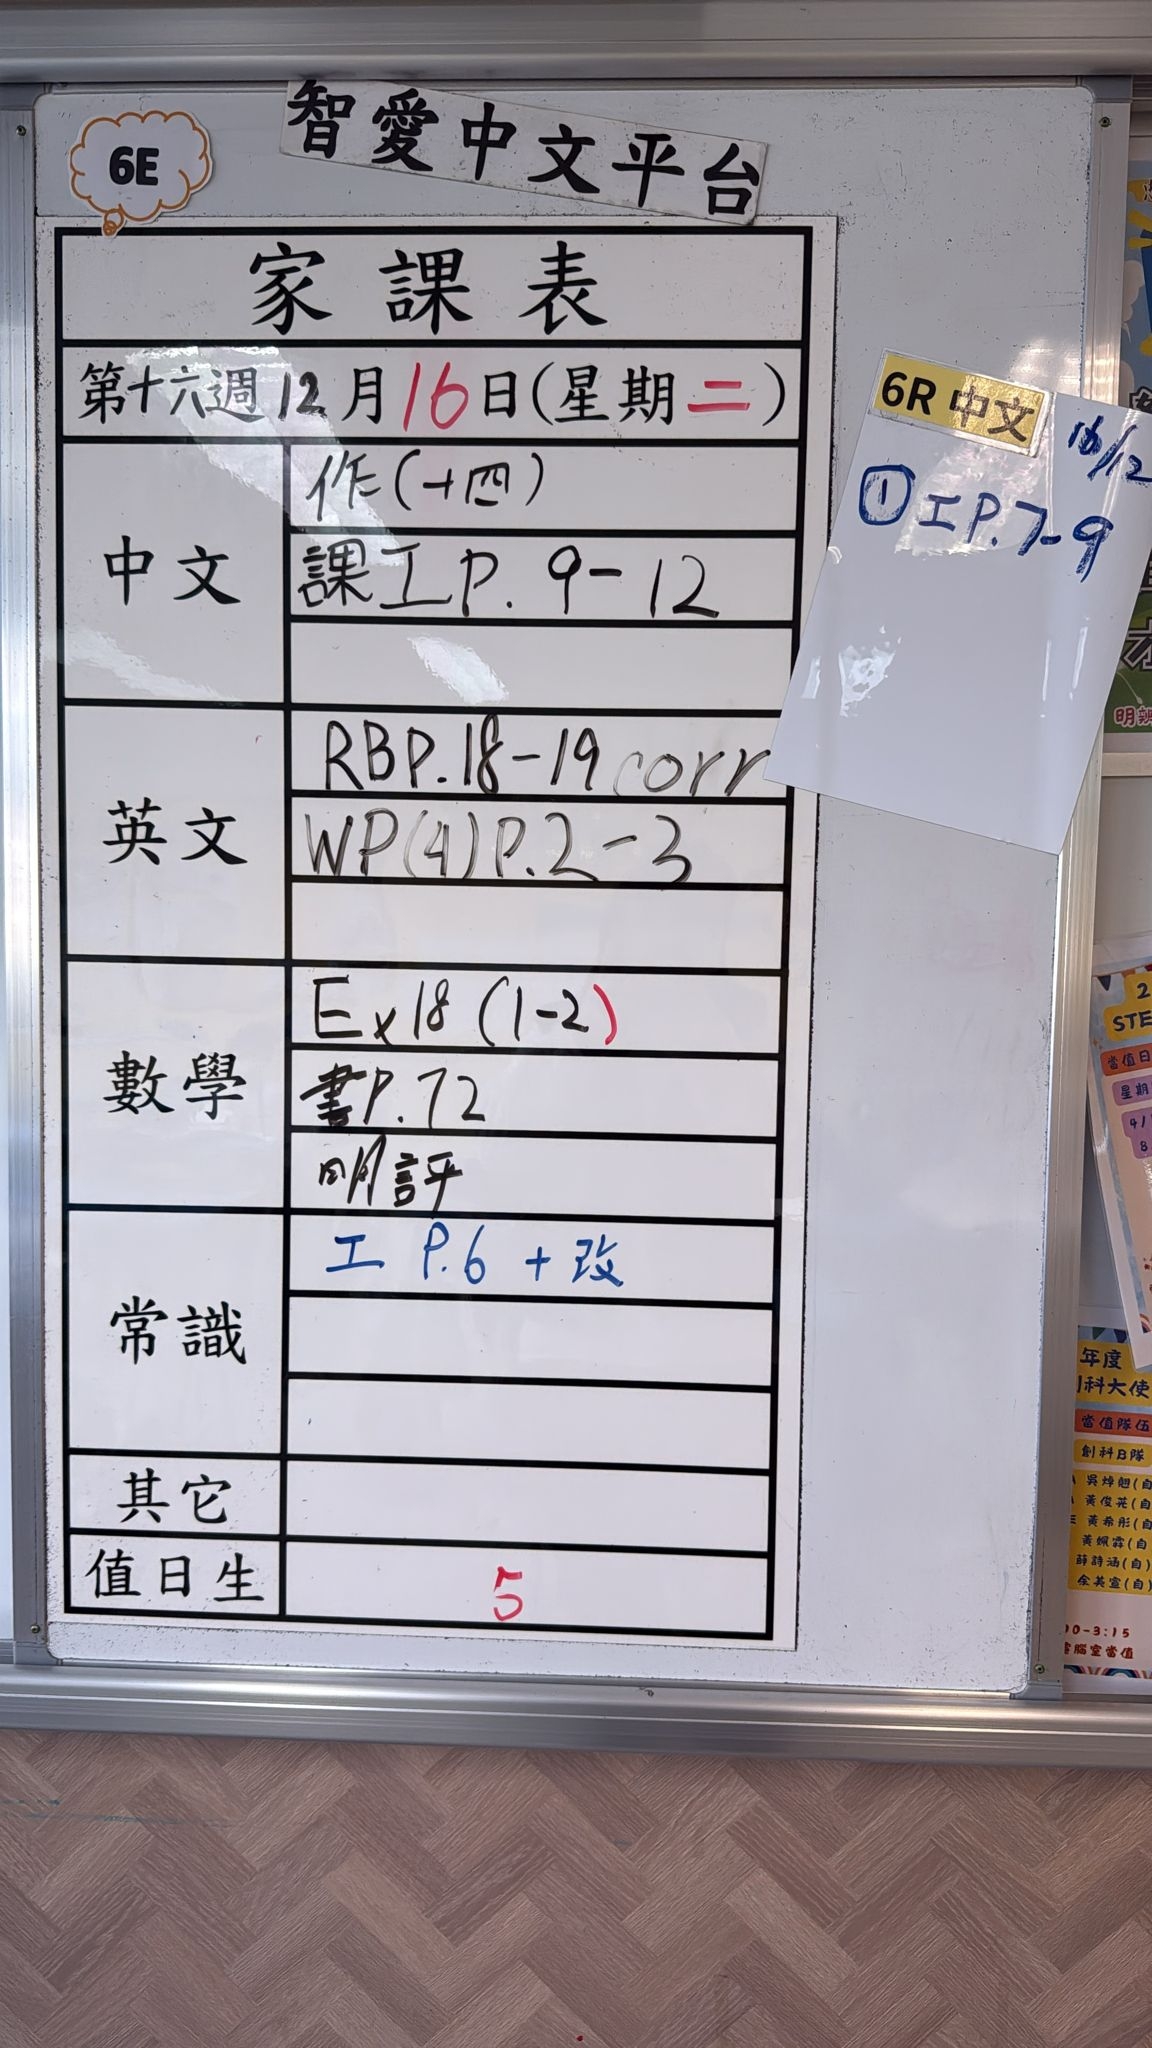 智愛中文平台
6E
家課表
第十六週12月16日(星期二)
中文
作(十四)
課工P. 9-12
英文
RBP.18-19 corr
WP(4)P.2-3
數學
Ex18 (1-2)
書P.72
明評
常識
工 P.6 + 改
其它
值日生
5
6R 中文
16/12
①工P.7-9
明辨
2
STE
當值日
星期
4/
8
年度
科大使
當值隊伍
創科B隊
黃俊
黃希彤(自
黃姵霖(自
薛詩涵(自)
余英宣(自)
0-3:15
腦室當值